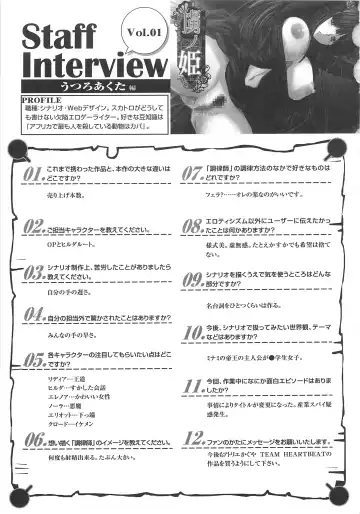 Staff
Interview
Vol.01
うつろあくた 編
PROFILE
職種:シナリオ・Webデザイン。スカトロがどうして
も書けない欠陥エロゲーライター。好きな豆知識は
「アフリカで最も人を殺している動物はカバ」。
01. これまで携わった作品と、本作の大きな違いは
どこですか?
売り上げ本数。
02. ご担当キャラクターを教えてください。
OPとヒルダルート。
03. シナリオ制作上、苦労したことがありましたら
教えてください。
自分の手の遅さ。
04. 自分の担当外で驚かされたことはありますか?
みんなの手の早さ。
05. 各キャラクターの注目してもらいたい点はどこ
ですか?
リディア―王道
ヒルダ―すかした会話
エレノア―かわいい女性
ノーラ―悪魔
エリオット―下っ端
クロード―イケメン
06. 想い描く「調律師」のイメージを教えてください。
何度も射精出来る。たぶん大きい。
07. 「調律師」の調律方法のなかで好きなものは
どれですか?
フェラ?……オレの楽なのがいいです。
08. エロティシズム以外にユーザーに伝えたかっ
たことは何かありますか?
様式美。虚無感。たとえかすかでも希望は捨て
ない。
09. シナリオを描くうえで気を使うところはどんな
部分ですか?
名台詞をひとつくらいは作る。
10. 今後、シナリオで扱ってみたい世界観、テーマ
などはありますか?
ミナミの帝王の主人公が●学生女子。
11. 今回、作業中になにか面白エピソードはありま
したか?
事情によりタイトルが変更になった。産業スパイ疑
惑発生。
12. ファンのかたにメッセージをお願いいたします。
今後もアトリエかぐや TEAM HEARTBEATの
作品を買うようにして下さい。